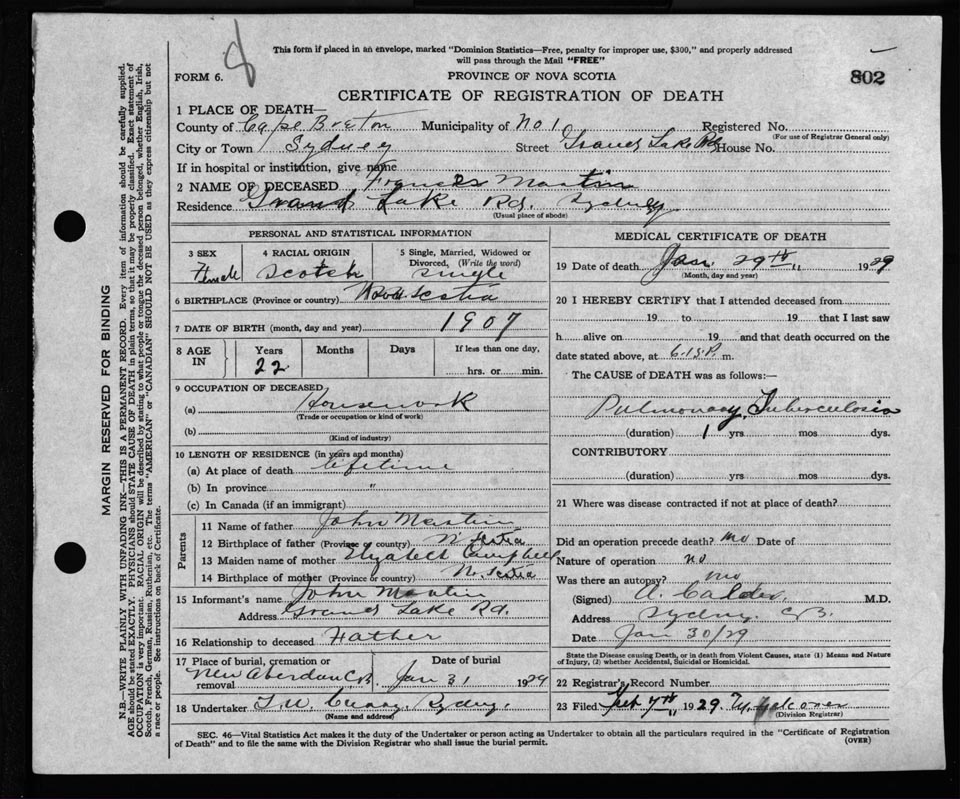 8
This form if placed in an envelope, marked "Dominion Statistics—Free, penalty for improper use, $300," and properly addressed
will pass through the Mail "FREE"
FORM 6.
PROVINCE OF NOVA SCOTIA
802
CERTIFICATE OF REGISTRATION OF DEATH
1 PLACE OF DEATH—
County of Cape Breton Municipality of No 1 Registered No.
(For use of Registrar General only)
City or Town Sydney Street Grand Lake Rd House No.
If in hospital or institution, give name
2 NAME OF DECEASED Frances Martin
Residence Grand Lake Rd. Sydney
(Usual place of abode)
PERSONAL AND STATISTICAL INFORMATION
3 SEX 4 RACIAL ORIGIN 5 Single, Married, Widowed or
Divorced, (Write the word)
Female Scotch Single
6 BIRTHPLACE (Province or country) Nova Scotia
7 DATE OF BIRTH (month, day and year) 1907
8 AGE IN Years Months Days If less than one day,
22 hrs. or min.
9 OCCUPATION OF DECEASED
(a) Housework
(Trade or occupation or kind of work)
(b)
(Kind of industry)
10 LENGTH OF RESIDENCE (in years and months)
(a) At place of death lifetime
(b) In province "
(c) In Canada (if an immigrant)
Parents
11 Name of father John Martin
12 Birthplace of father (Province or country) N Scotia
13 Maiden name of mother Elizabeth Campbell
14 Birthplace of mother (Province or country) N. Scotia
15 Informant's name John Martin
Address Grand Lake Rd.
16 Relationship to deceased Father
17 Place of burial, cremation or Date of burial
removal New Aberdeen C.B. Jan 31 1929
18 Undertaker T. W. Curry, Sydney.
(Name and address)
MEDICAL CERTIFICATE OF DEATH
19 Date of death Jan. 29th 1929
(Month, day and year)
20 I HEREBY CERTIFY that I attended deceased from
19 to 19 that I last saw
h alive on 19 and that death occurred on the
date stated above, at 6.15P. m.
The CAUSE of DEATH was as follows:—
Pulmonary Tuberculosis
(duration) 1 yrs mos dys.
CONTRIBUTORY
(duration) yrs mos dys.
21 Where was disease contracted if not at place of death?
Did an operation precede death? no Date of
Nature of operation no
Was there an autopsy? no
(Signed) A. Calder. M.D.
Address Sydney. C.B.
Date Jan 30/29
State the Disease causing Death, or in death from Violent Causes, state (1) Means and Nature
of Injury, (2) whether Accidental, Suicidal or Homicidal.
22 Registrar's Record Number
23 Filed Feb 7th 1929
(Division Registrar)
SEC. 46—Vital Statistics Act makes it the duty of the Undertaker or person acting as Undertaker to obtain all the particulars required in the "Certificate of Registration
of Death" and to file the same with the Division Registrar who shall issue the burial permit.
(OVER)
MARGIN RESERVED FOR BINDING
N.B.—WRITE PLAINLY WITH UNFADING INK—THIS IS A PERMANENT RECORD. Every item of information should be carefully supplied.
AGE should be stated EXACTLY. PHYSICIANS should STATE CAUSE OF DEATH in plain terms, so that it may be properly classified. Exact statement of
OCCUPATION is very important. RACIAL ORIGIN will be described by stating to what people or tongue the deceased person belonged, whether English, Irish,
Scotch, French, German, Russian, Ruthenian, etc. The terms "AMERICAN" or "CANADIAN" SHOULD NOT BE USED as they express citizenship but not
a race or people. See instructions on back of Certificate.